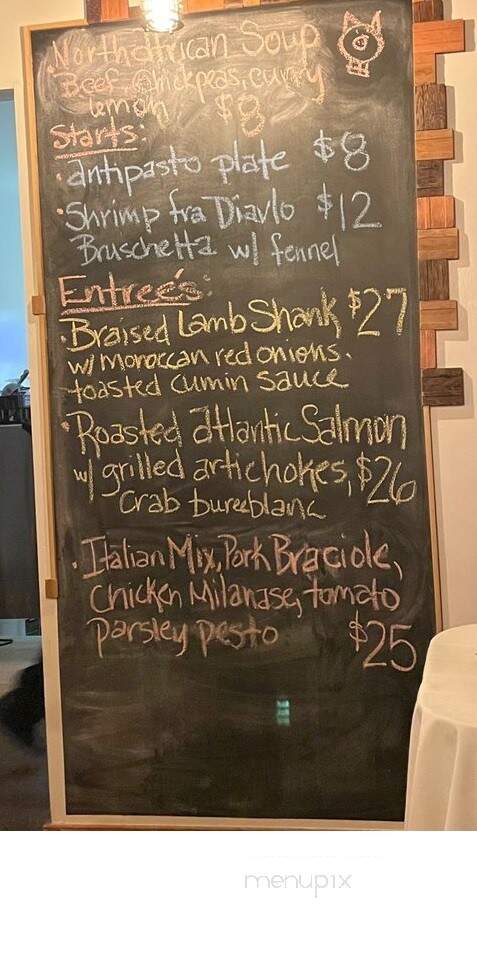 North african Soup
Beef, Chickpeas, curry
lemon $8
Starts:
· antipasto plate $8
· Shrimp fra Diavlo $12
Bruschetta w/ fennel
Entree's:
· Braised Lamb Shank $27
w/ moroccan red onions.
toasted cumin sauce
· Roasted atlantic Salmon
w/ grilled artichokes, $26
Crab bureblanc
· Italian Mix, Pork Braciole,
Chicken Milanase, tomato
parsley pesto $25
menupix